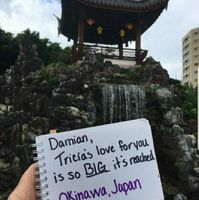 Damian,
Tricia's love for you
is so BIG it's reached
Okinawa, Japan